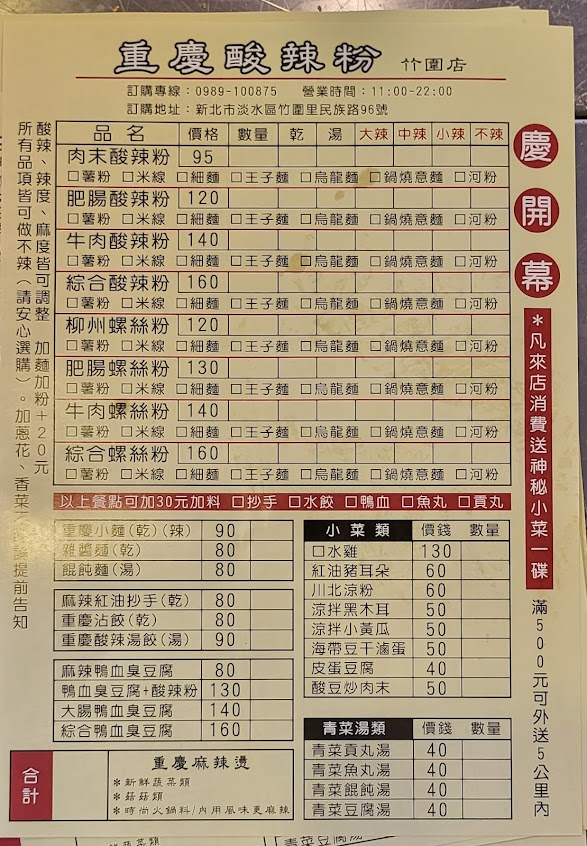 重慶酸辣粉 竹圍店
訂購專線：0989-100875 營業時間：11:00-22:00
訂購地址：新北市淡水區竹圍里民族路96號
酸辣、辣度、麻度皆可調整 加麵加粉+20元
所有品項皆可做不辣（請安心選購）。加蔥花、香菜
提前告知
品名 價格 數量 乾 湯 大辣 中辣 小辣 不辣
肉末酸辣粉 95
□薯粉 □米線 □細麵 □王子麵 □烏龍麵 □鍋燒意麵 □河粉
肥腸酸辣粉 120
□薯粉 □米線 □細麵 □王子麵 □烏龍麵 □鍋燒意麵 □河粉
牛肉酸辣粉 140
□薯粉 □米線 □細麵 □王子麵 □烏龍麵 □鍋燒意麵 □河粉
綜合酸辣粉 160
□薯粉 □米線 □細麵 □王子麵 □烏龍麵 □鍋燒意麵 □河粉
柳州螺絲粉 120
□薯粉 □米線 □細麵 □王子麵 □烏龍麵 □鍋燒意麵 □河粉
肥腸螺絲粉 130
□薯粉 □米線 □細麵 □王子麵 □烏龍麵 □鍋燒意麵 □河粉
牛肉螺絲粉 140
□薯粉 □米線 □細麵 □王子麵 □烏龍麵 □鍋燒意麵 □河粉
綜合螺絲粉 160
□薯粉 □米線 □細麵 □王子麵 □烏龍麵 □鍋燒意麵 □河粉
以上餐點可加30元加料 □抄手 □水餃 □鴨血 □魚丸 □貢丸
慶開幕
＊凡來店消費送神秘小菜一碟
滿500元可外送5公里內
重慶小麵(乾)(辣) 90
雜醬麵(乾) 80
餛飩麵(湯) 80
麻辣紅油抄手(乾) 80
重慶沾餃(乾) 80
重慶酸辣湯餃(湯) 90
麻辣鴨血臭豆腐 80
鴨血臭豆腐+酸辣粉 130
大腸鴨血臭豆腐 140
綜合鴨血臭豆腐 160
小菜類 價錢 數量
口水雞 130
紅油豬耳朵 60
川北涼粉 60
涼拌黑木耳 50
涼拌小黃瓜 50
海帶豆干滷蛋 50
皮蛋豆腐 40
酸豆炒肉末 50
青菜湯類 價錢 數量
青菜貢丸湯 40
青菜魚丸湯 40
青菜餛飩湯 40
青菜豆腐湯 40
合計
重慶麻辣燙
＊新鮮蔬菜類
＊菇菇類
＊時尚火鍋料/內用風味更麻辣